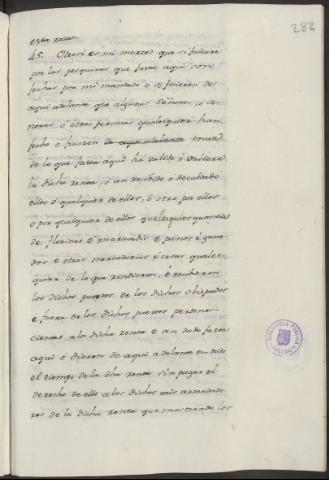 282
esta razon.
45. Otrosi es mi merced que si fallare
por las pesquisas que fasta aqui son
fechas por mi mandado o se fuieren de
aqui adelante que algunos Señores, o se-
noras, o otras personas qualesquier han
fecho o fuieren de aqui adelante toma
de lo que fasta aqui ha valido o valiere
la dicha renta, o an recibido o recabado
ellos o qualquier de ellos, o otro por ellos
o por qualquier de ellos qualesquier quantias
de florines e maravedis e panes e gana-
dos e otras mercadurias e cosas quales-
quiera de lo que rendieron, e recibieron
los dichos puertos de los dichos Obispados
e fuera de los dichos puertos pertene-
cientes a la dicha renta e an dado fasta
aqui o dieren de aqui adelante en todo
el tiempo de la dha renta sin pagar el
derecho de ello a los dichos mis arrendado-
res de la dicha renta que mostrando los
BIBLIOTECA PUBLICA